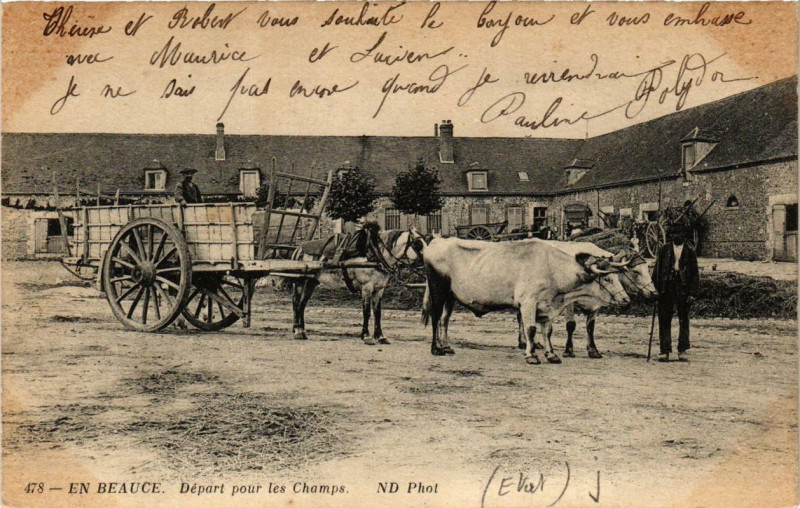 Thérèse et Robert vous souhaite le bonjour et vous embrasse
avec Maurice et Lucien..
Je ne sais pas encore quand je reviendrai
Pauline Polydor
478 — EN BEAUCE. Départ pour les Champs. ND Phot